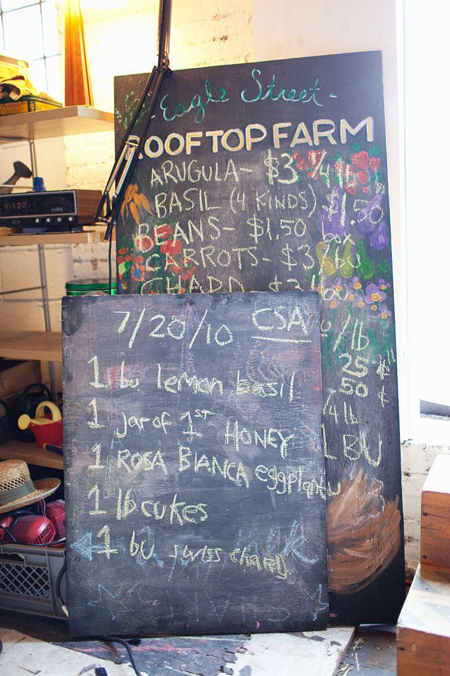 Eagle Street
ROOFTOP FARM
ARUGULA- $3 1/4 lb
BASIL (4 KINDS) $1.50
BEANS- $1.50 box
CARROTS- $3 bu
CHARD
/lb
25¢
.50¢
1/4 lb
BU
7/20/10 CSA
1 bu lemon basil
1 jar of 1ST HONEY
1 ROSA BIANCA eggplant
1 lb cukes
1 bu swiss chard